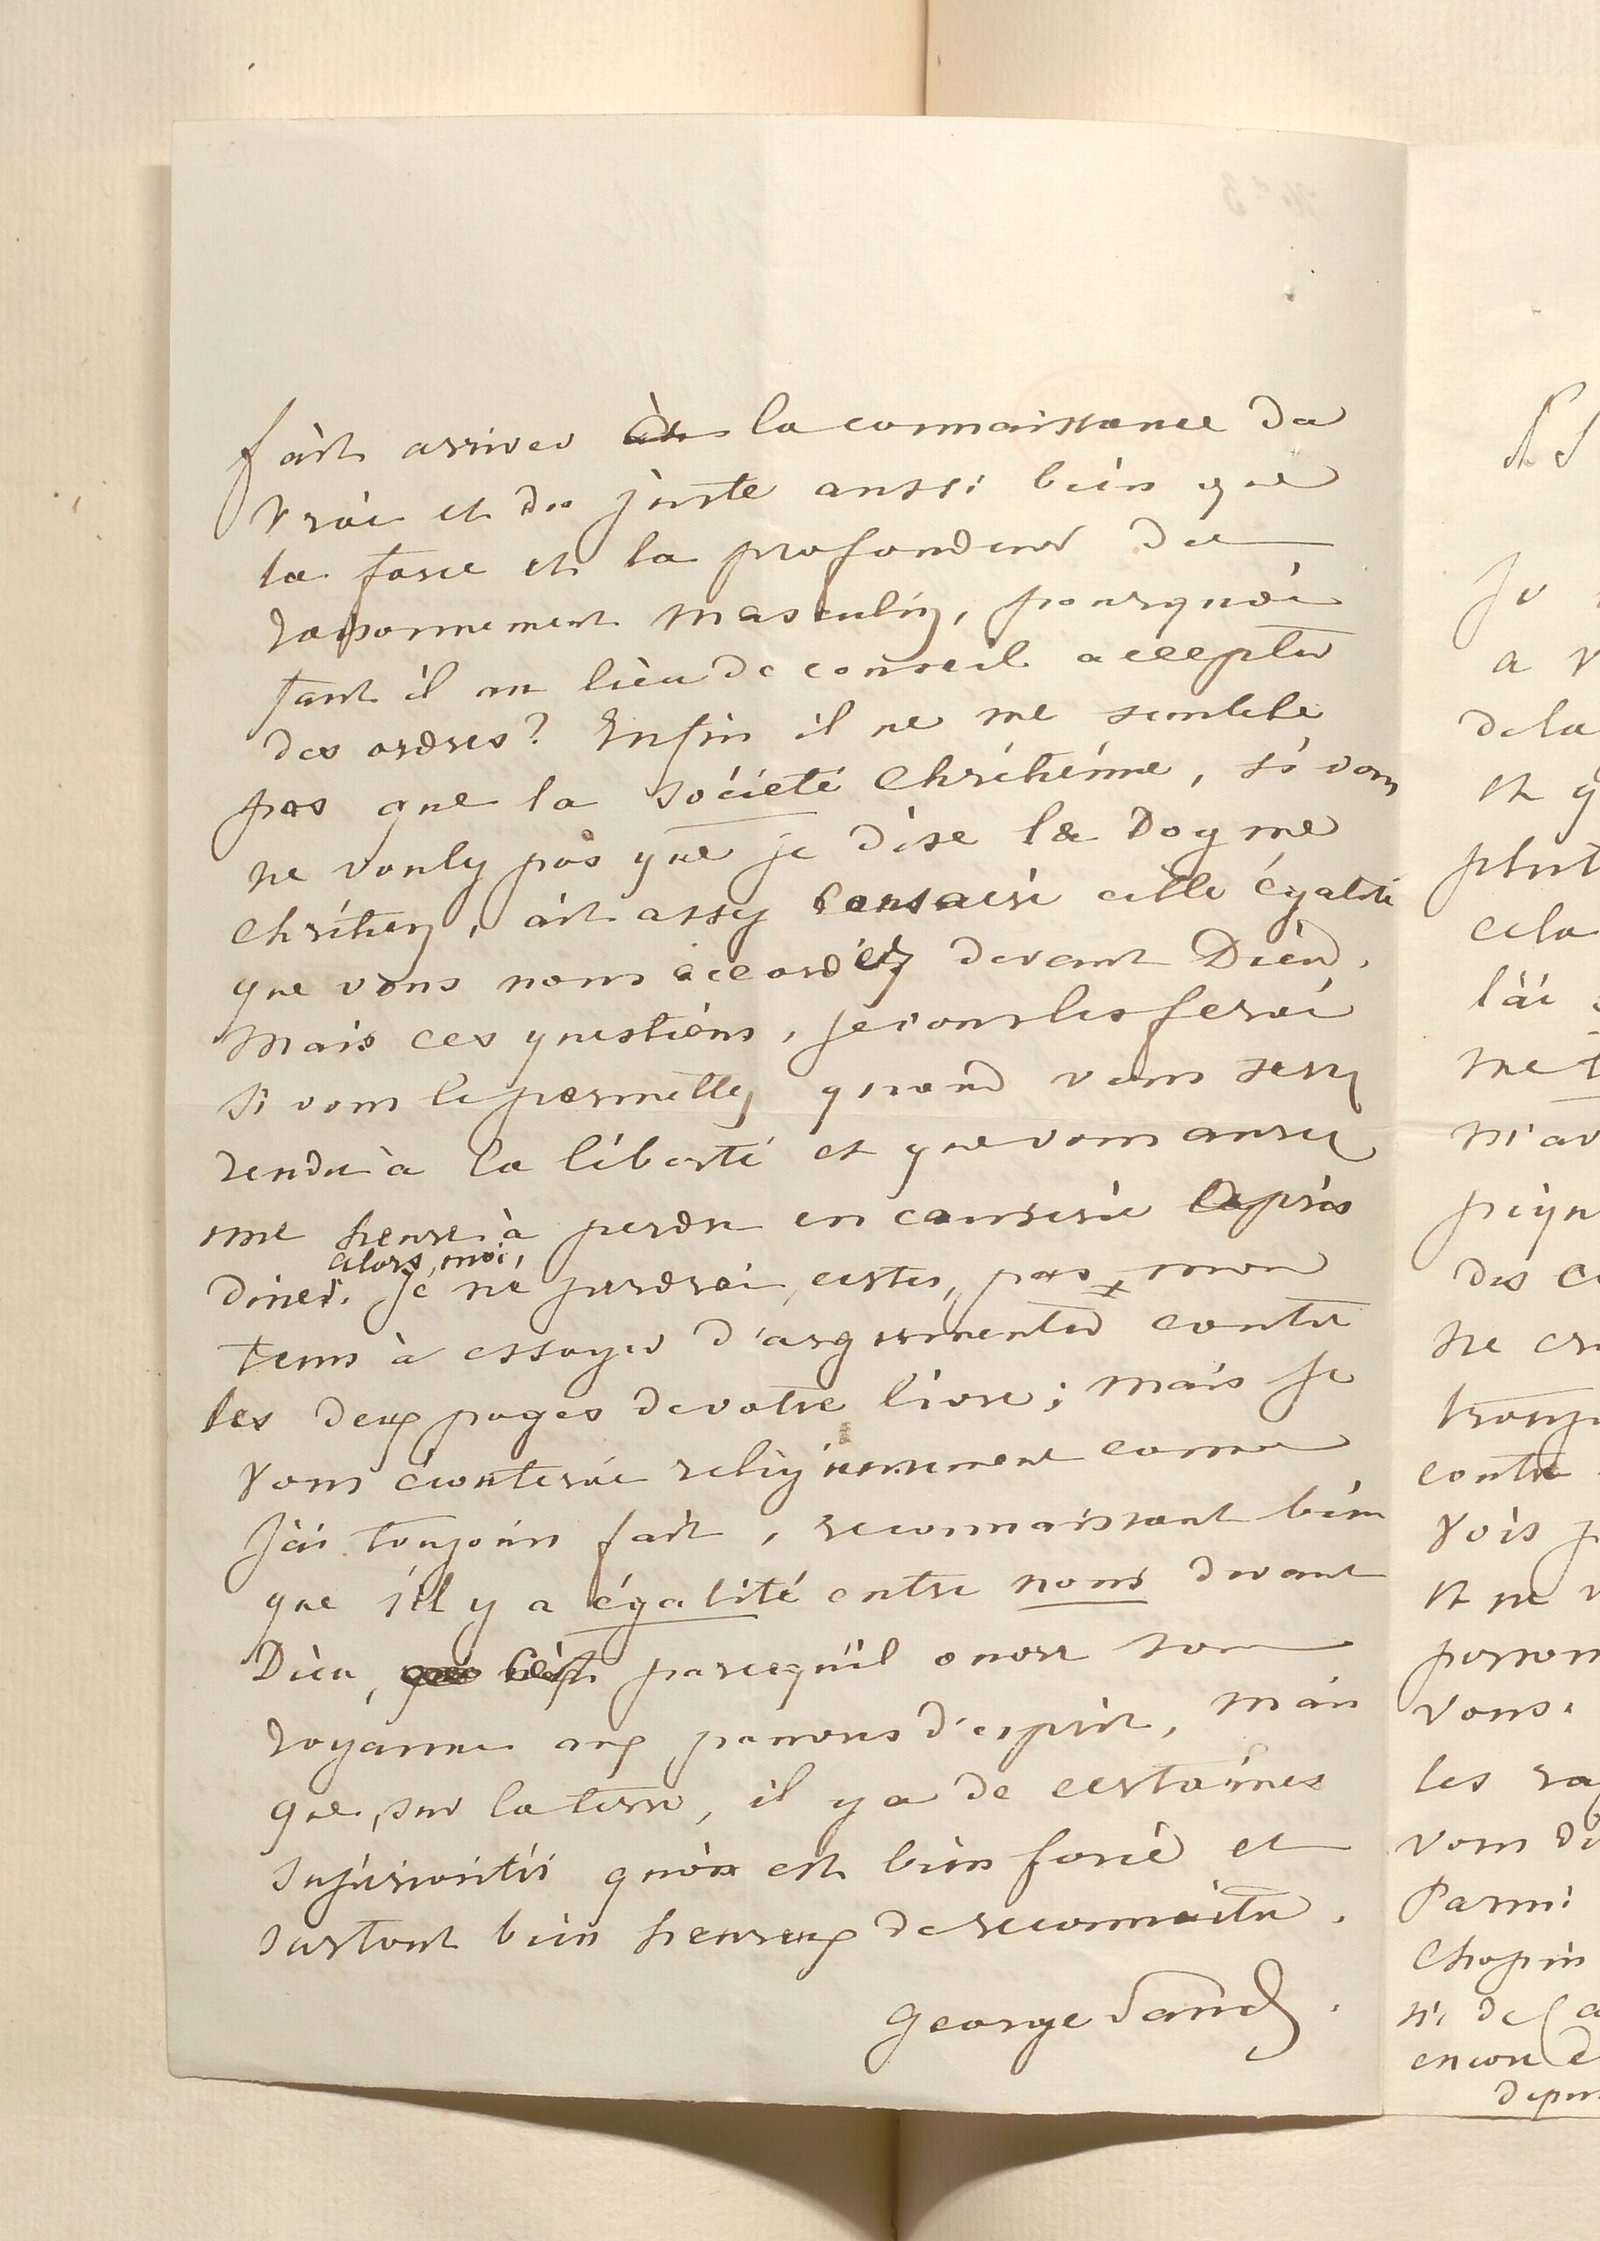 fait arriver à la connaissance du
vrai et du juste aussi bien que
la force et la profondeur du
raisonnement masculin, pourquoi
faut il au lieu de conseil accepter
des ordres? Enfin il ne me semble
pas que la société chrétienne, si vous
ne voulez pas que je dise le Dogme
chrétien, ait assez consacré cette égalité
que vous nous accordez devant Dieu.
Mais ces questions, je vous les ferai
si vous le permettez quand vous serez
rendu à la liberté et que vous aurez
une heure à perdre en causerie après
diner. alors, moi, je ne perdrai, certes, pas mon
tems à essayer d'argumenter contre
les deux pages de votre livre; mais je
vous écouterai religieusement comme
j'ai toujours fait, reconnaissant bien
que s'il y a égalité entre nous devant
Dieu, c'est parcequ'il ouvre son
royaume aux pauvres d'esprit, mais
que, sur la terre, il y a de certaines
supériorités qu'on est bien forcé et
surtout bien heureux de reconnaitre.
George Sand.
PS
Je
a v
de la
et q
plut
cela
l'ai
me t
m'av
peign
des c
ne cr
tromp
contre
vois p
et ne v
person
vous.
les ra
vous di
Parmi
Chopin
ni, de
encore